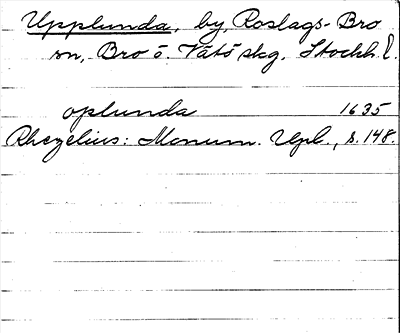 Upplunda, by, Roslags-Bro
sn, Bro o. Vätö skg, Stockh. l.
oplunda 1635
Rhezelius: Monum. Upl., s. 148.